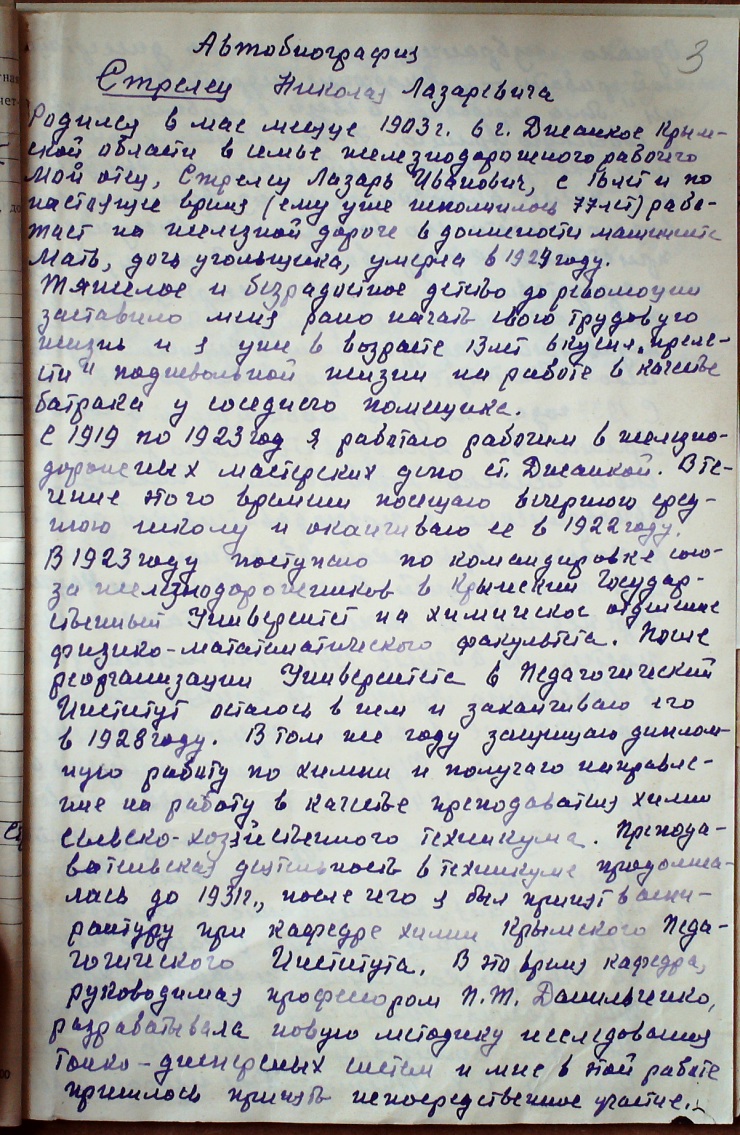 3
Автобиография
Стрелец Николая Лазаревича
Родился в мае месяце 1903г. в г. Джанкое Крым-
ской области в семье железнодорожного рабочего
Мой отец, Стрелец Лазарь Иванович, с 16 лет и по
настоящие время (ему уже исполнилось 77 лет) рабо-
тает на железной дороге в должности машиниста
Мать, дочь угольщика, умерла в 1929 году.
Тяжелое и безрадостное детство до революции
заставило меня рано начать свою трудовую
жизнь и я уже в возрасте 13 лет вкусил „преле-
сти" подневольной жизни на работе в качестве
батрака у соседнего помещика.
С 1919 по 1923 год я работаю рабочим в железно-
дорожных мастерских депо ст. Джанкой. В те-
чение этого времени посещаю вечернюю сред-
нюю школу и оканчиваю ее в 1922 году.
В 1923 году поступаю по командировке сою-
за железнодорожников в Крымский Государ-
ственный Университет на химическое отделение
физико-мататематического факультета. После
реорганизации Университета в Педагогический
Институт остаюсь в нем и заканчиваю его
в 1928 году. В том же году защищаю диплом-
ную работу по химии и получаю направле-
ние на работу в качестве преподавателя химии
сельско-хозяйственного техникума. Препода-
вательская деятельность в техникуме продолжа-
лась до 1931г., после чего я был принят в аспи-
рантуру при кафедре химии Крымского Педа-
гогического Института. В это время кафедра,
руководимая профессором П.Т. Данильченко,
разрабатывала новую методику исследования
тонко-дисперсных систем и мне в этой работе
пришлось принять непосредственное участие.